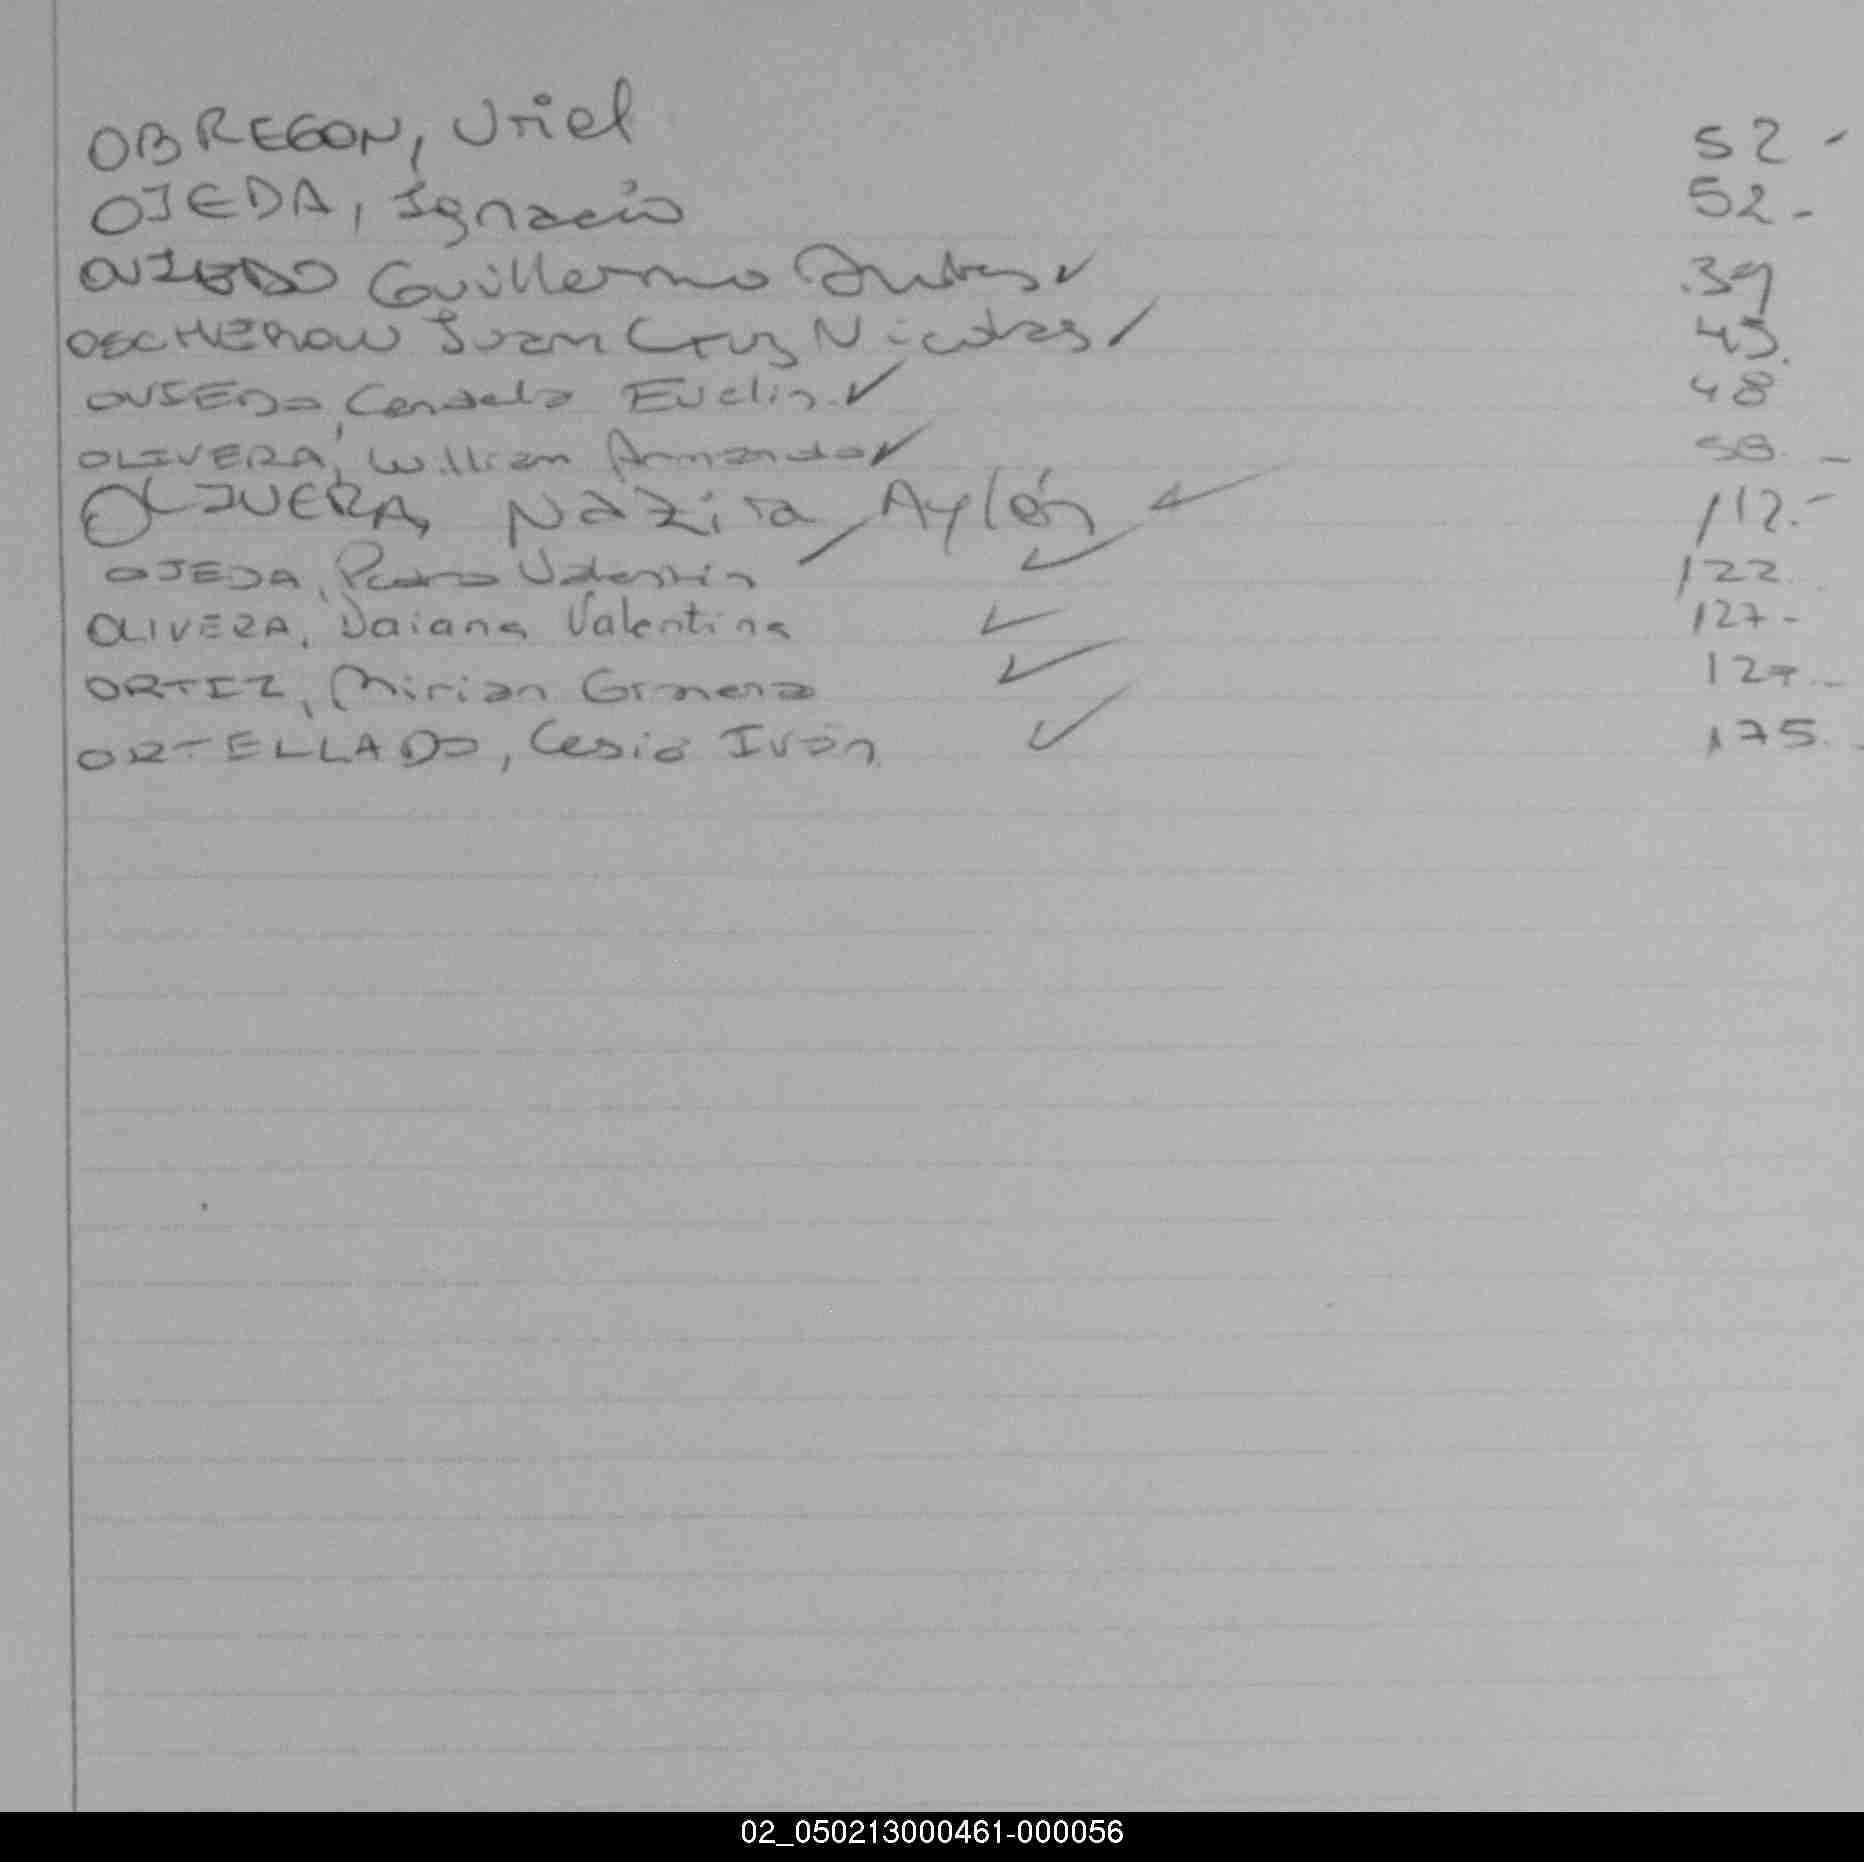 OBREGON, Uriel 52-
OJEDA, Ignacio 52-
OVIEDO Guillermo Andres 39
Juan Cruz Nicolas 45.
OVIEDO, Candela Evelin 48
OLIVERA, William Armando 58.-
OLIVERA, Nazira Aylén 112.-
OJEDA, Pedro Valentin 122.
OLIVERA, Daiana Valentina 127-
ORTIZ, Mirian Gimena 127.-
ORTELLADO, Cesio Iván 175.-
02_050213000461-000056